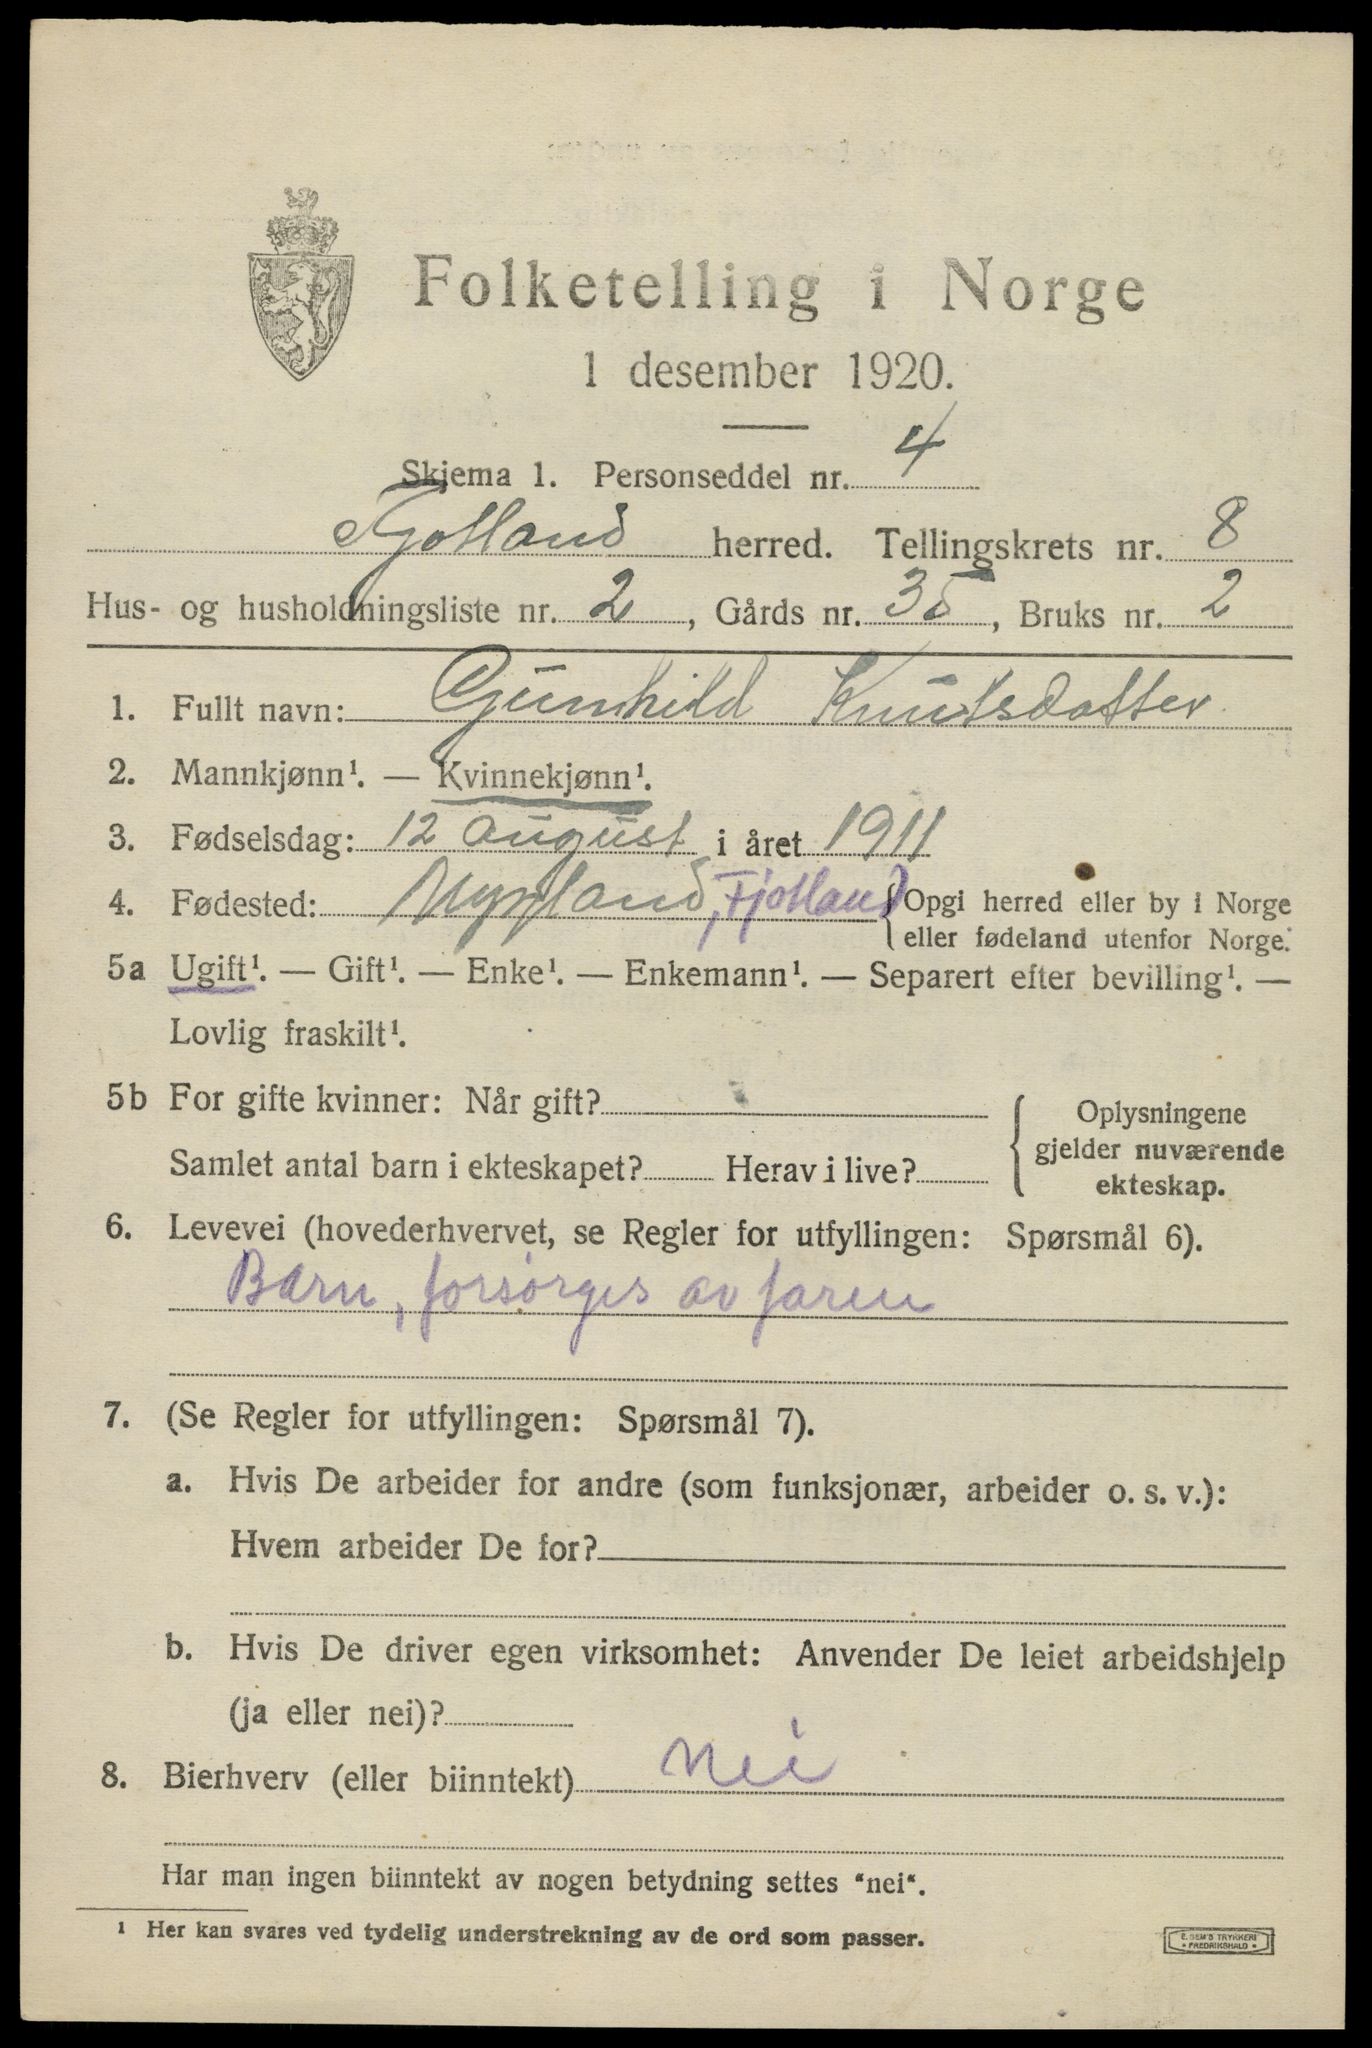 Folketelling i Norge
1 desember 1920.
Skjema 1. Personseddel nr. 4
Fjotland herred. Tellingskrets nr. 8
Hus- og husholdningsliste nr. 2, Gårds nr. 35, Bruks nr. 2
1. Fullt navn: Gunhild Knutsdatter
2. Mannkjønn¹. — Kvinnekjønn¹.
3. Fødselsdag: 12 august i året 1911
4. Fødested: Nypland, Fjotland { Opgi herred eller by i Norge
eller fødeland utenfor Norge.
5a Ugift¹. — Gift¹. — Enke¹. — Enkemann¹. — Separert efter bevilling¹. —
Lovlig fraskilt¹.
5b For gifte kvinner: Når gift?
Samlet antal barn i ekteskapet? Herav i live?
{ Oplysningene
gjelder nuværende
ekteskap.
6. Levevei (hovederhvervet, se Regler for utfyllingen: Spørsmål 6).
Barn, forsørges av faren
7. (Se Regler for utfyllingen: Spørsmål 7).
a. Hvis De arbeider for andre (som funksjonær, arbeider o. s. v.):
Hvem arbeider De for?
b. Hvis De driver egen virksomhet: Anvender De leiet arbeidshjelp
(ja eller nei)?
8. Bierhverv (eller biinntekt) Nei
Har man ingen biinntekt av nogen betydning settes "nei".
¹ Her kan svares ved tydelig understrekning av de ord som passer.
E. SEM'S TRYKKERI
• FREDRIKSHALD •